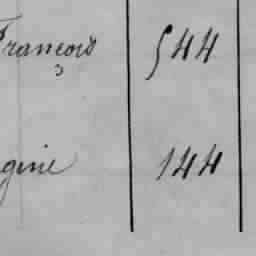 François 544
3
gnie 144